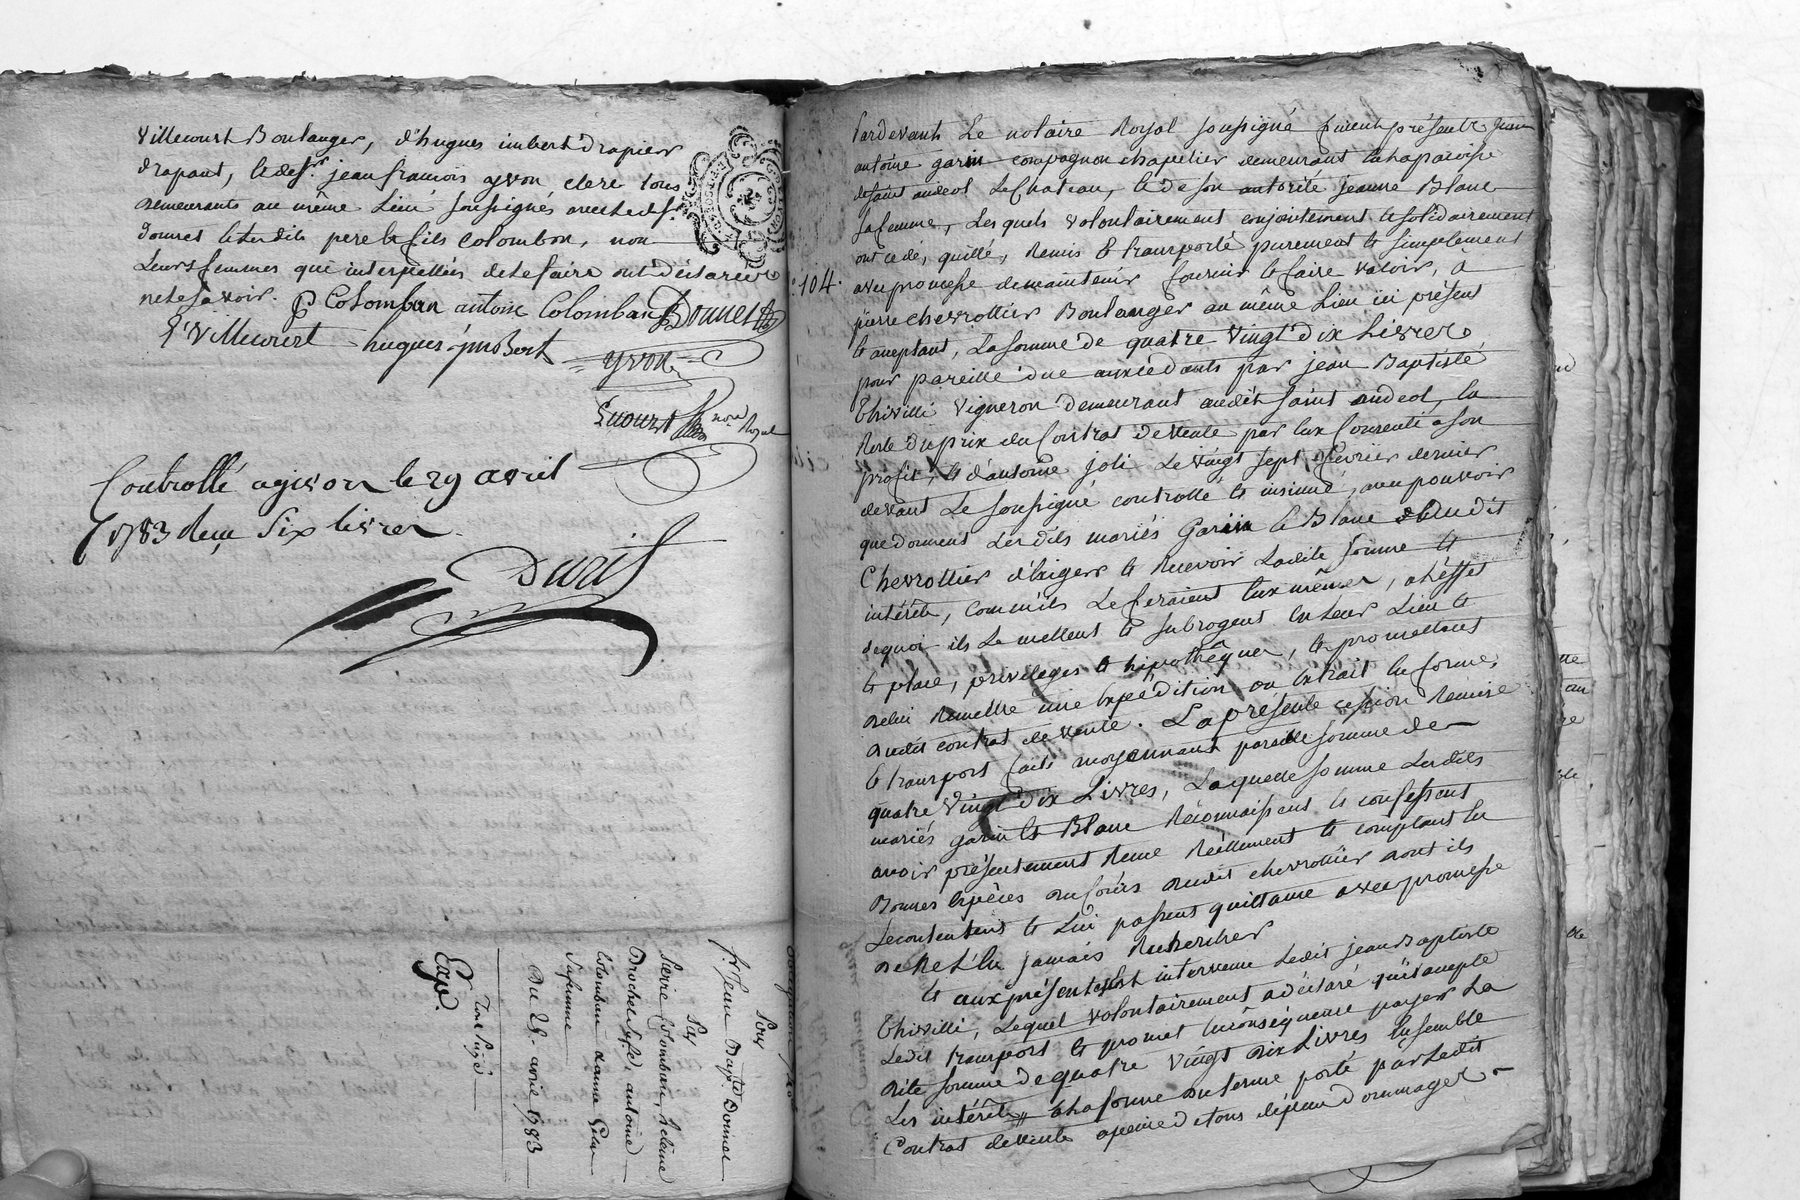 Villecourt Boulanger, d'hugues imbert Drapier
drapant, le desr. jean francois yvon, clerc tous
demeurants au même Lieu soussignés avec ledsr.
Donnet et lesdits pere et fils Colomban, non
Leurs femmes qui interpellées de le faire ont déclaré
ne le savoir. P Colomban antoine Colomban Donnet
P. Villecourt hugues imbert
yvon
no.re Royal
Controllé a givors le 29 avril
1783 Reçu Six livres
Duris
104.
Pardevant Le notaire Royal soussigné furent présents Jean
antoine garin compagnon chapelier demeurant en la paroisse
de saint andeol Le Chateau, et de son autorité jeanne Blanc
sa femme, Lesquels volontairement conjointement et solidairement
ont cedé, quitté, Remis & transporté purement et simplement
avec promesse de maintenir fournir et faire valoir, a
pierre chevrottier Boulanger au même Lieu ici présent
et acceptant, La somme de quatre Vingt Dix Livres
pour pareille due aux cédants par jean Baptiste
Thivilli Vigneron demeurant audit saint andeol, en
Reste du prix du Contrat de vente par eux Consenti a son
profit, et d'antoine joli Le vingt sept fevrier dernier
devant Le soussigné controllé et insinué, avec pouvoir
que donnent Lesdits mariés Garin et Blanc audit
Chevrottier d'exiger et Recevoir Ladite somme et
intérêts, comm'ils Le feroient eux mêmes, a l'effet
de quoi ils Le mettent et subrogent en Leur Lieu et
et place, privileges et hipothêques, et promettent
de lui Remettre une expédition ou extrait en forme
dudit contrat de vente. La présente cession Remise
et transport faits moyennant pareille somme de
quatre Vingt Dix Livres, Laquelle somme Lesdits
mariés garin et Blanc Reconnoissent et confessent
avoir présentement Recue Réellement et comptant en
Bonnes espèces du Cours dudit chevrottier dont ils
se contentent et Lui passent quittance avec promesse
de ne L'en jamais Rechercher
et aux présentes est intervenu Ledit jean Baptiste
Thivilli, Lequel volontairement a déclaré qu'il accepte
Ledit transport et promet en conséquence payer La
dite somme de quatre Vingt Dix Livres ensemble
Les intérêts a la forme du terme porté par Ledit
Contrat de vente a peine de tous dépens dommages
Pour
sr. Jean Bapte. Donnet
Par
Pierre Colomban, helène
antoine
Colomban & anne
sa femme
Du 28. avril 1783
Expé.